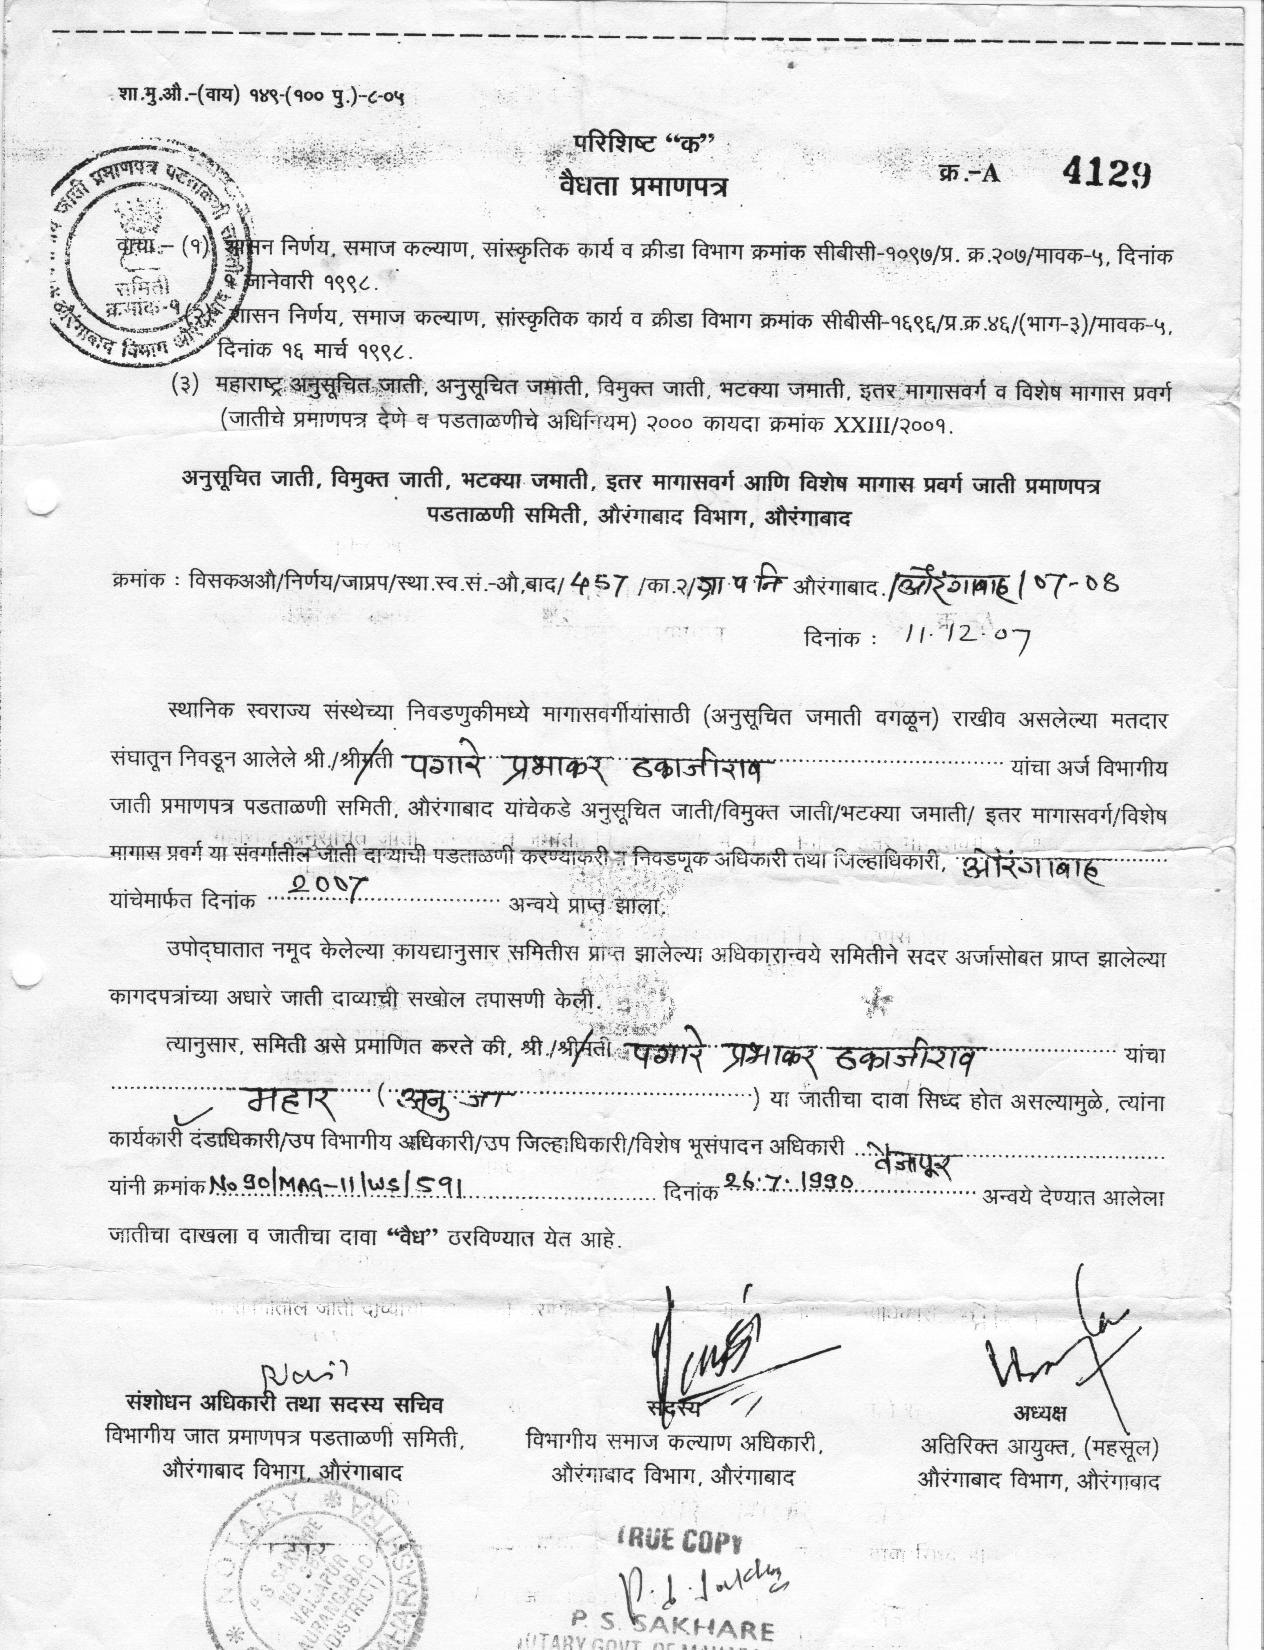 शा.मु.औ.-(वाय) १४९-(१०० पु.)-८-०५
परिशिष्ट “क”
वैधता प्रमाणपत्र
क्र.-A 4129
जाती प्रमाणपत्र पडताळणी समिती
औरंगाबाद विभाग औरंगाबाद
समिती
क्रमांक-१
वाचा – (१) शासन निर्णय, समाज कल्याण, सांस्कृतिक कार्य व क्रीडा विभाग क्रमांक सीबीसी-१०९७/प्र. क्र.२०७/मावक-५, दिनांक
१ जानेवारी १९९८.
(२) शासन निर्णय, समाज कल्याण, सांस्कृतिक कार्य व क्रीडा विभाग क्रमांक सीबीसी-१६९६/प्र.क्र.४६/(भाग-३)/मावक-५,
दिनांक १६ मार्च १९९८.
(३) महाराष्ट्र अनुसूचित जाती, अनुसूचित जमाती, विमुक्त जाती, भटक्या जमाती, इतर मागासवर्ग व विशेष मागास प्रवर्ग
(जातीचे प्रमाणपत्र देणे व पडताळणीचे अधिनियम) २००० कायदा क्रमांक XXIII/२००१.
अनुसूचित जाती, विमुक्त जाती, भटक्या जमाती, इतर मागासवर्ग आणि विशेष मागास प्रवर्ग जाती प्रमाणपत्र
पडताळणी समिती, औरंगाबाद विभाग, औरंगाबाद
क्रमांक : विसकअऔ/निर्णय/जाप्रप/स्था.स्व.सं.-औ,बाद/ 457 /का.२/ग्रा प नि औरंगाबाद./औरंगाबाद/07-08
दिनांक : 11.12.07
स्थानिक स्वराज्य संस्थेच्या निवडणुकीमध्ये मागासवर्गीयांसाठी (अनुसूचित जमाती वगळून) राखीव असलेल्या मतदार
संघातून निवडून आलेले श्री./श्रीमती पगारे प्रभाकर ठकाजीराव यांचा अर्ज विभागीय
जाती प्रमाणपत्र पडताळणी समिती, औरंगाबाद यांचेकडे अनुसूचित जाती/विमुक्त जाती/भटक्या जमाती/ इतर मागासवर्ग/विशेष
मागास प्रवर्ग या संवर्गातील जाती दाव्याची पडताळणी करण्याकरी निवडणूक अधिकारी तथा जिल्हाधिकारी, औरंगाबाद
यांचेमार्फत दिनांक 2007 अन्वये प्राप्त झाला.
उपोद्घातात नमूद केलेल्या कायद्यानुसार समितीस प्राप्त झालेल्या अधिकारान्वये समितीने सदर अर्जासोबत प्राप्त झालेल्या
कागदपत्रांच्या अधारे जाती दाव्याची सखोल तपासणी केली.
त्यानुसार, समिती असे प्रमाणित करते की, श्री./श्रीमती पगारे प्रभाकर ठकाजीराव यांचा
महार (अनु.जा ) या जातीचा दावा सिध्द होत असल्यामुळे, त्यांना
कार्यकारी दंडाधिकारी/उप विभागीय अधिकारी/उप जिल्हाधिकारी/विशेष भूसंपादन अधिकारी वैजापूर
यांनी क्रमांक No 90/MAG-II/WS/591 दिनांक 26.7.1990 अन्वये देण्यात आलेला
जातीचा दाखला व जातीचा दावा “वैध” ठरविण्यात येत आहे.
संशोधन अधिकारी तथा सदस्य सचिव
विभागीय जात प्रमाणपत्र पडताळणी समिती,
औरंगाबाद विभाग, औरंगाबाद
सदस्य
विभागीय समाज कल्याण अधिकारी,
औरंगाबाद विभाग, औरंगाबाद
अध्यक्ष
अतिरिक्त आयुक्त, (महसूल)
औरंगाबाद विभाग, औरंगाबाद
NOTARY
P S SAKHARE
VAIJAPUR
AURANGABAD
(DISTRICT)
TRUE COPY
P. S. SAKHARE
NOTARY GOVT. OF